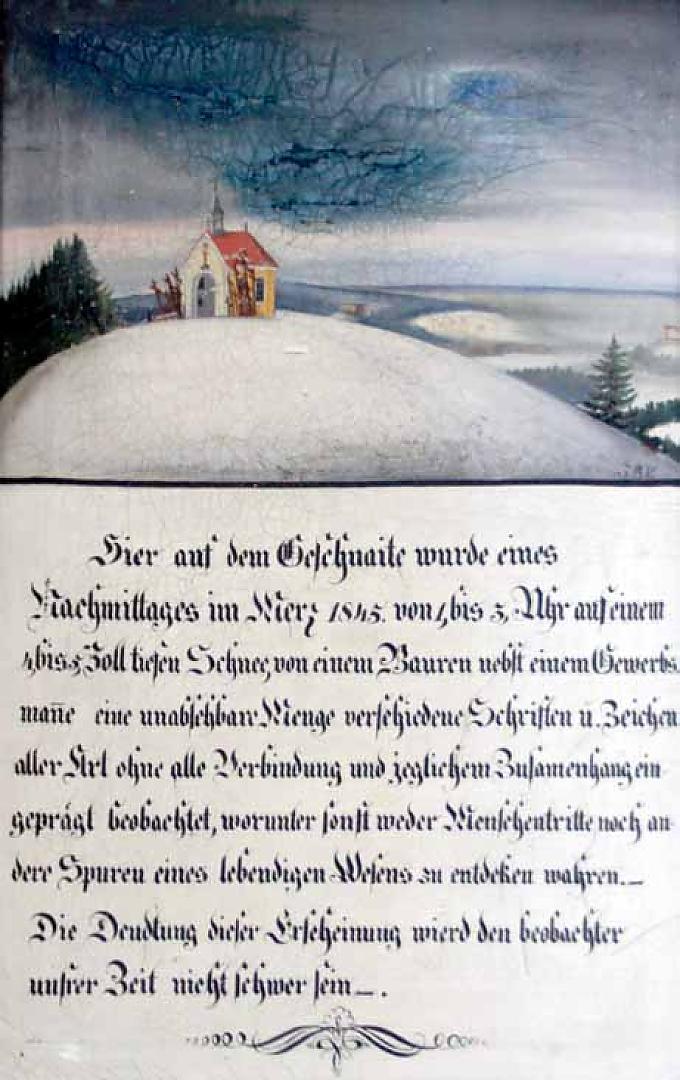 Hier auf dem Geschnaite wurde eines
Nachmittages im Merz 1845. von 1, bis 3, Uhr auf einem
4, bis 5, Zoll tiefen Schnee, von einem Bauren nebst einem Gewerbs
mañe eine unabsehbare Menge verschiedene Schriften u. Zeichen
aller Art ohne alle Verbindung und jeglichem Zusamenhang ein
geprägt beobachtet, worunter sonst weder Menschentritte noch an
dere Spuren eines lebendigen Wesens zu entdeken wahren. –
Die Deudtung dieser Erscheinung wierd den beobachter
unsrer Zeit nicht schwer sein – .